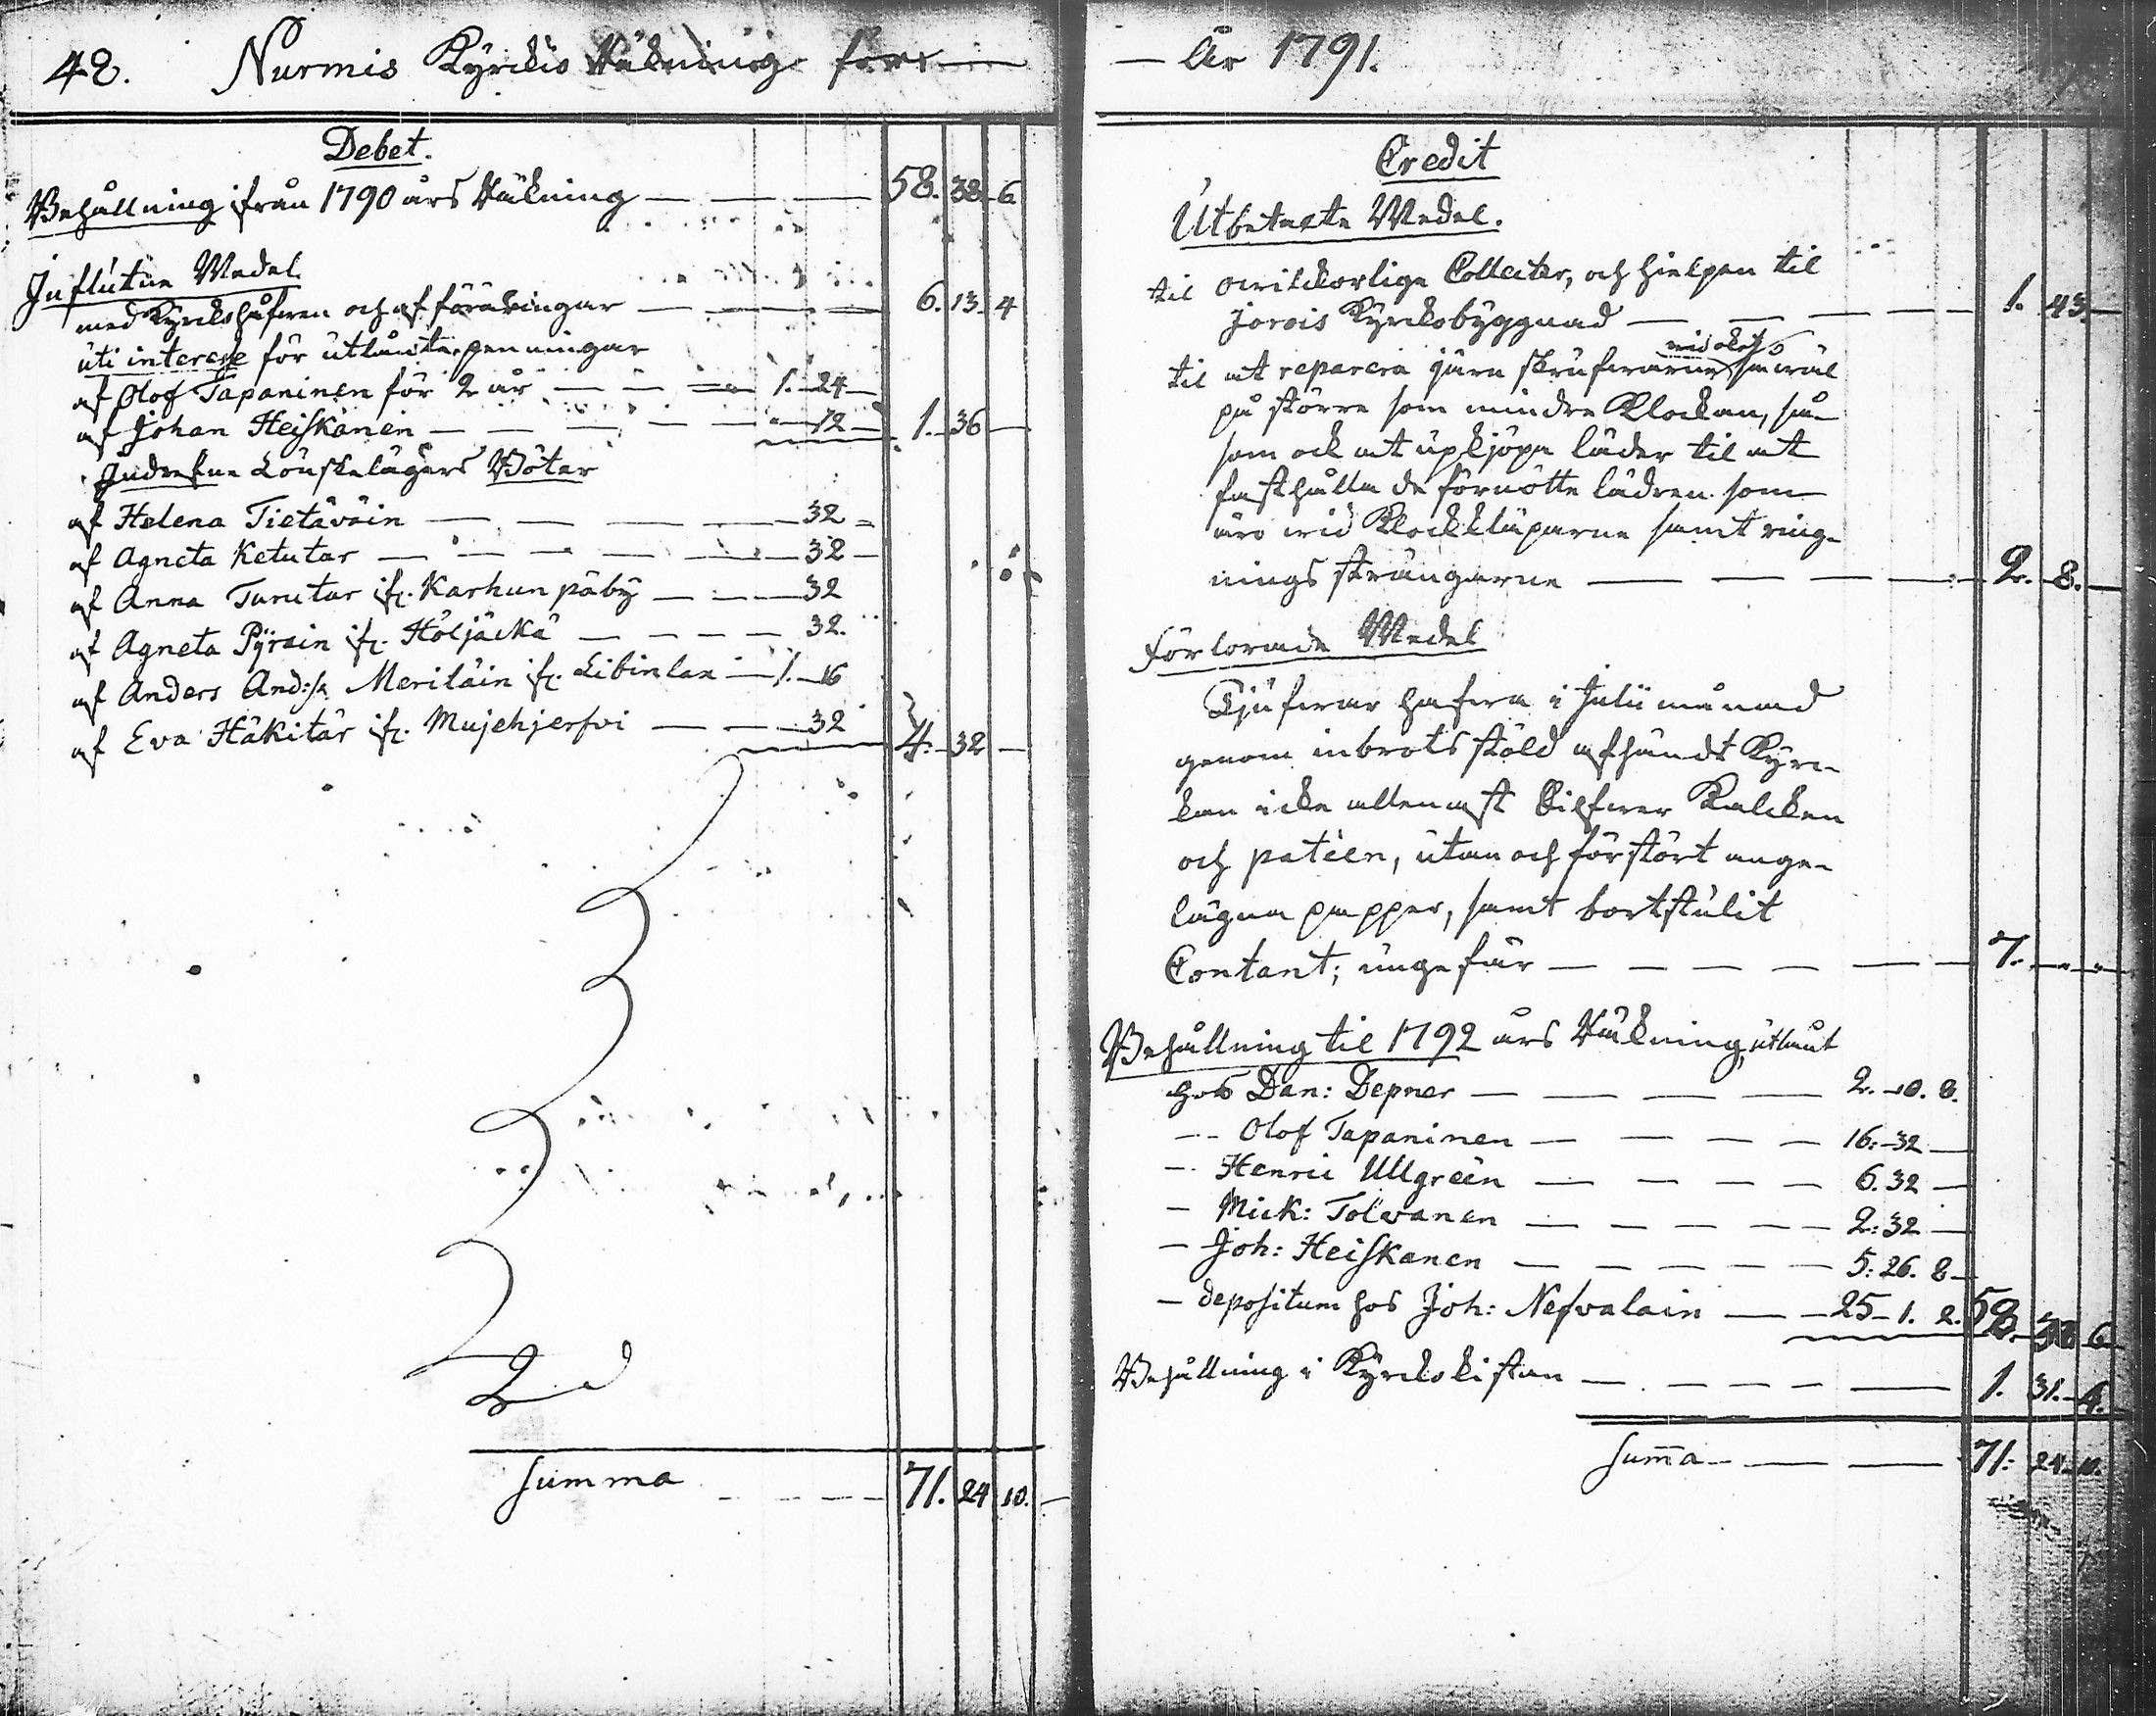 48. Nurmis Kyrckio Räkning för
Debet.
Behållning ifrån 1790 års Räkning 58. 38. 6
Influtne Medel
med Kyrckohåfwen och af föräringar 6. 13. 4
uti interesse för utlånte penningar
af Olof Tapaninen för 2 år 1. 24
af Johan Heiskanen 12 1. 36
Indrefne Lönskelägers Böter
af Helena Tietäväin 32
af Agneta Ketutar 32
af Anna Turutar ifr. Karhunpäby 32
af Agneta Pyrain ifr. Höljäckä 32.
af Anders And:ss Meriläin ifr. Libinlax 1. 16
af Eva Häkitär ifr. Mujehjerfvi 32 4. 32
Summa 71. 24 10.
År 1791.
Credit
Utbetalte Medel.
til owilckorlige Collecter, och hielpen til
Jorois Kyrckobyggnad 1. 43
wid oket
til at reparera järn skrufwarne så wäl
på större som mindre Klockan, så
som ock at upkjöpa läder til at
fasthålla de förnötte lädren som
äro wid Klockkläparne samt ring-
nings strängarne 2. 8.
Förlorade Medel
Tjufwar hafwa i Julii månad
genom inbrotsstöld afhändt Kyrc-
kan icke allenast Silfwer Kalcken
och patéen, utan och förstört ange-
lägna papper, samt bortstulit
Contant; ungefär 7.
Behållning til 1792 års Räkning, utlånt
hos Dan: Depner 2. 10. 8.
Olof Tapaninen 16. 32
Henric Ullgréen 6. 32
Mick: Tolvanen 2: 32
Joh: Heiskanen 5: 26. 8
depositum hos Joh: Nefvalain 25 1. 2. 58. 38 6
Behållning i Kyrckokistan 1. 31. 4.
Summa 71. 24. 10.